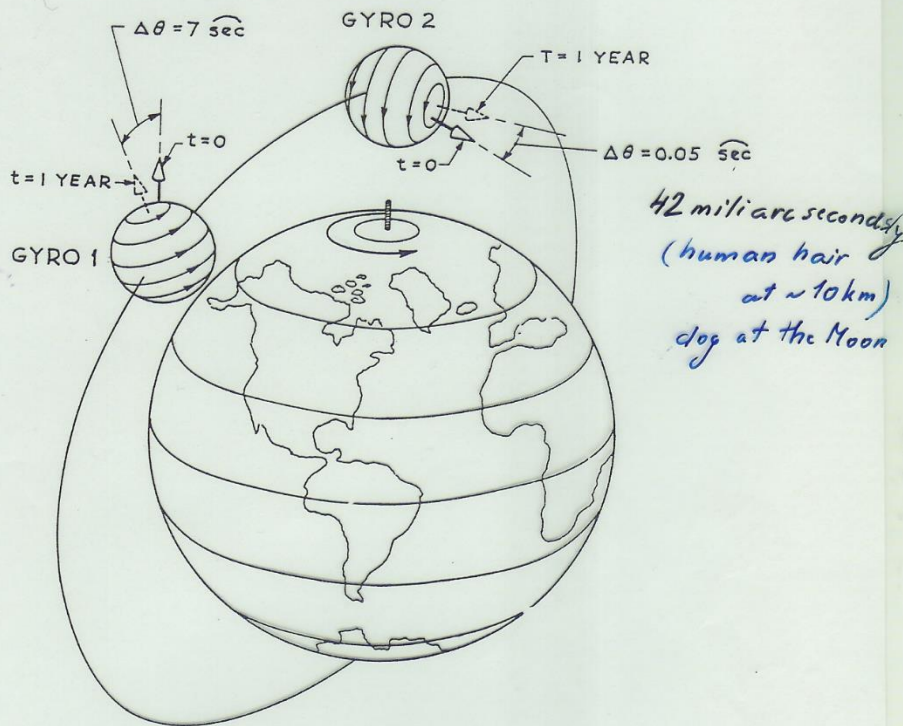 Δθ = 7 s͡ec
GYRO 2
T = 1 YEAR
t=0
t=0
Δθ = 0.05 s͡ec
t = 1 YEAR
GYRO 1
42 miliarcseconds/y
(human hair
at ~ 10 km)
dog at the Moon